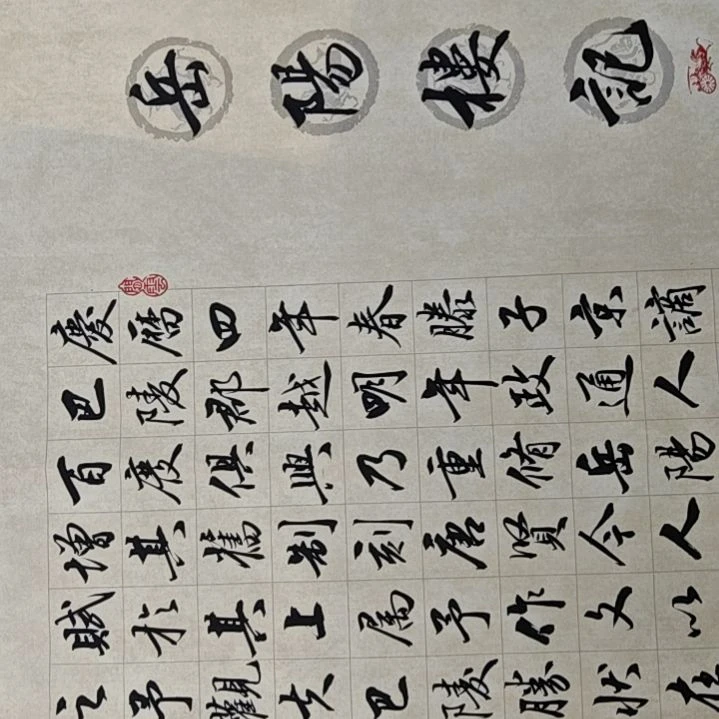 岳陽樓記
慶曆四年春滕子京謫
巴陵郡越明年政通人
百廢俱興乃重脩岳陽
增其舊制刻唐賢今人
賦於其上属予作文以
之予觀夫巴陵勝狀在